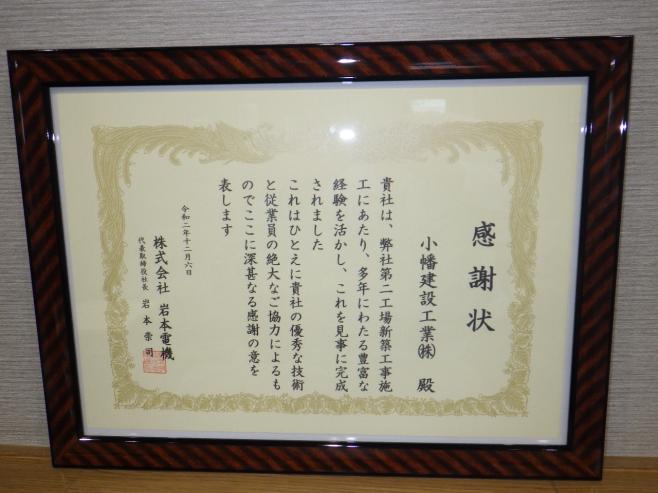 感謝状
小幡建設工業㈱ 殿
貴社は、弊社第二工場新築工事施
工にあたり、多年にわたる豊富な
経験を活かし、これを見事に完成
されました
これはひとえに貴社の優秀な技術
と従業員の絶大なご協力によるも
のでここに深甚なる感謝の意を
表します
令和二年十二月六日
株式会社 岩本電機
代表取締役社長 岩本崇司